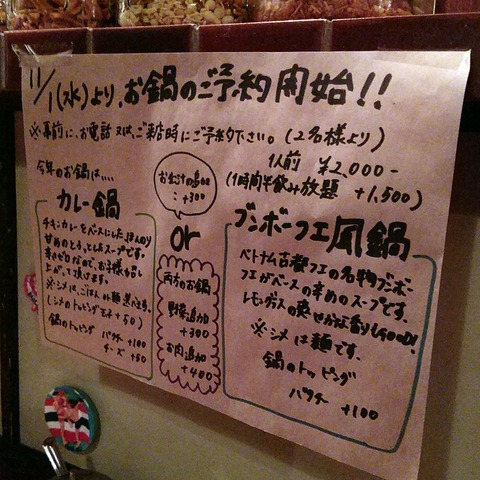 11/1(水)より、お鍋のご予約開始!!
※事前に、お電話又は、ご来店時にご予約下さい。(2名様より)
1人前 ¥2,000-
(1時間半飲み放題 +1,500)
今年のお鍋は…、
カレー鍋
チキンカレーをベースにした ほんのり
甘めのとろっとしたスープです。
辛さゼロなので、お子様も召し
上がって頂けます。
※シメは、ごはんか麺 選べます。
(シメのトッピング 玉子 +50)
鍋のトッピング パクチー +100
チーズ +50
+300
or
両方のお鍋
野菜追加
+300
お肉追加
+400
ブンボーフエ風鍋
ベトナム古都フエの名物ブンボー
フエがベースの辛めのスープです。
レモングラスの爽やかな香りGOOD!
※シメは麺です。
鍋のトッピング
パクチー +100